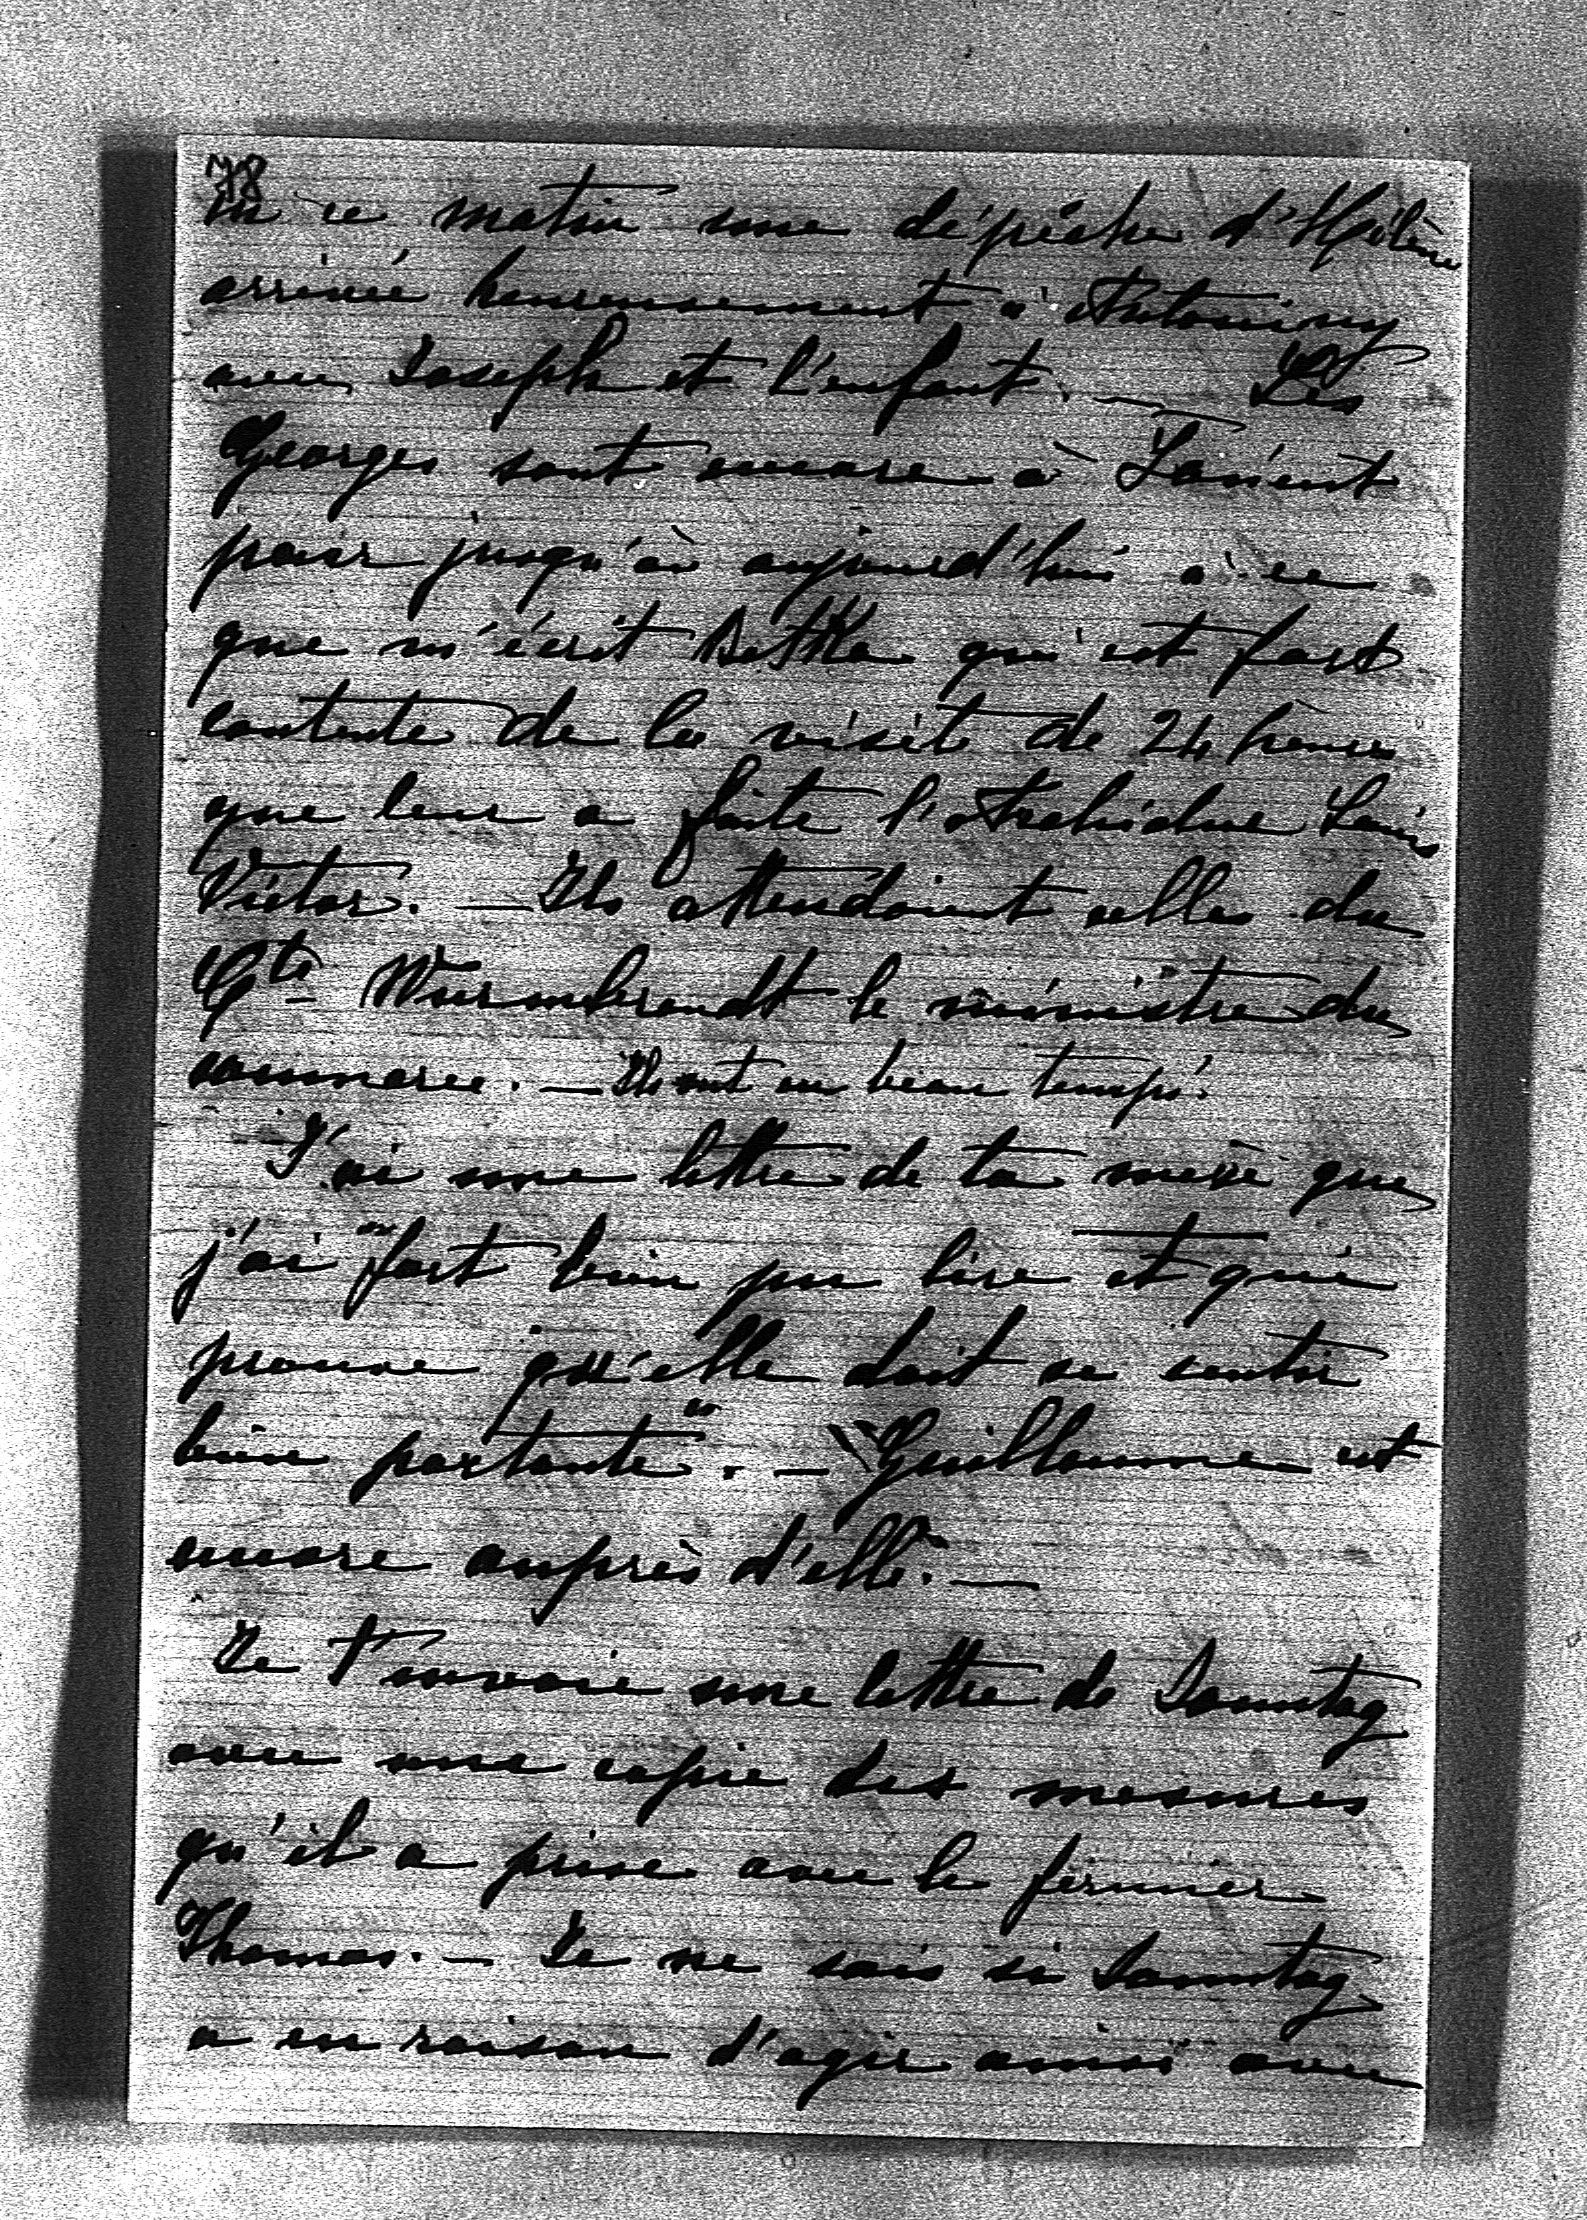 78
eu ce matin une dépêche d'Hélène
arrivée heureusement à Antoniny
avec Joseph et l'enfant. — Les
Georges sont encore à Łańcut
pour jusqu'à aujourd'hui à ce
que m'écrit Betka qui est fort
contente de la visite de 24 heures
que leur a faite l'Archiduc Louis
Victor. — Ils attendaient celle du
Cte Wurmbrandt le ministre du
commerce. — Ils ont eu beau temps.
J'ai une lettre de ta mère que
j'ai fort bien pu lire et qui
prouve qu'elle doit se sentir
bien portante. — Guillaume est
encore auprès d'elle. —
Je t'envoie une lettre de Sonntag
avec une copie des mesures
qu'il a prise avec le fermier
Thomas. — Je ne sais si Sonntag
a eu raison d'agir ainsi avec